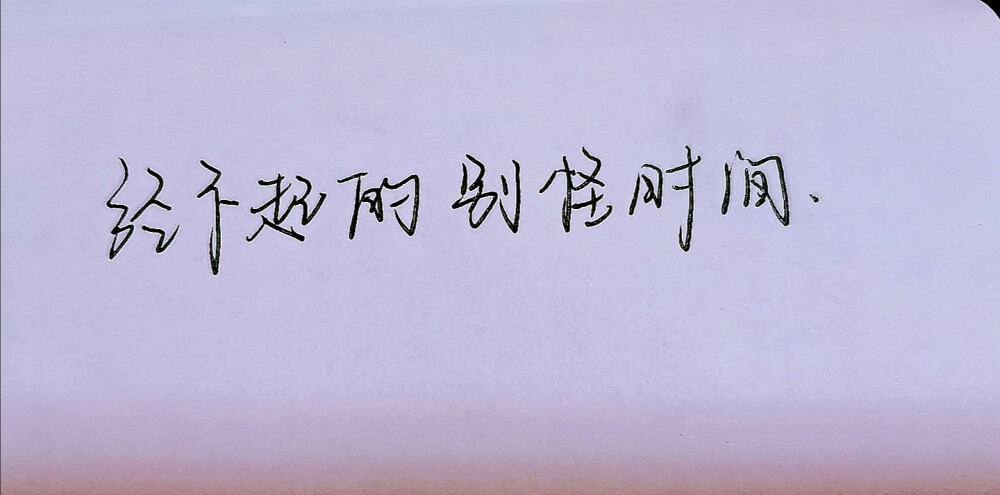 经不起的别怪时间.